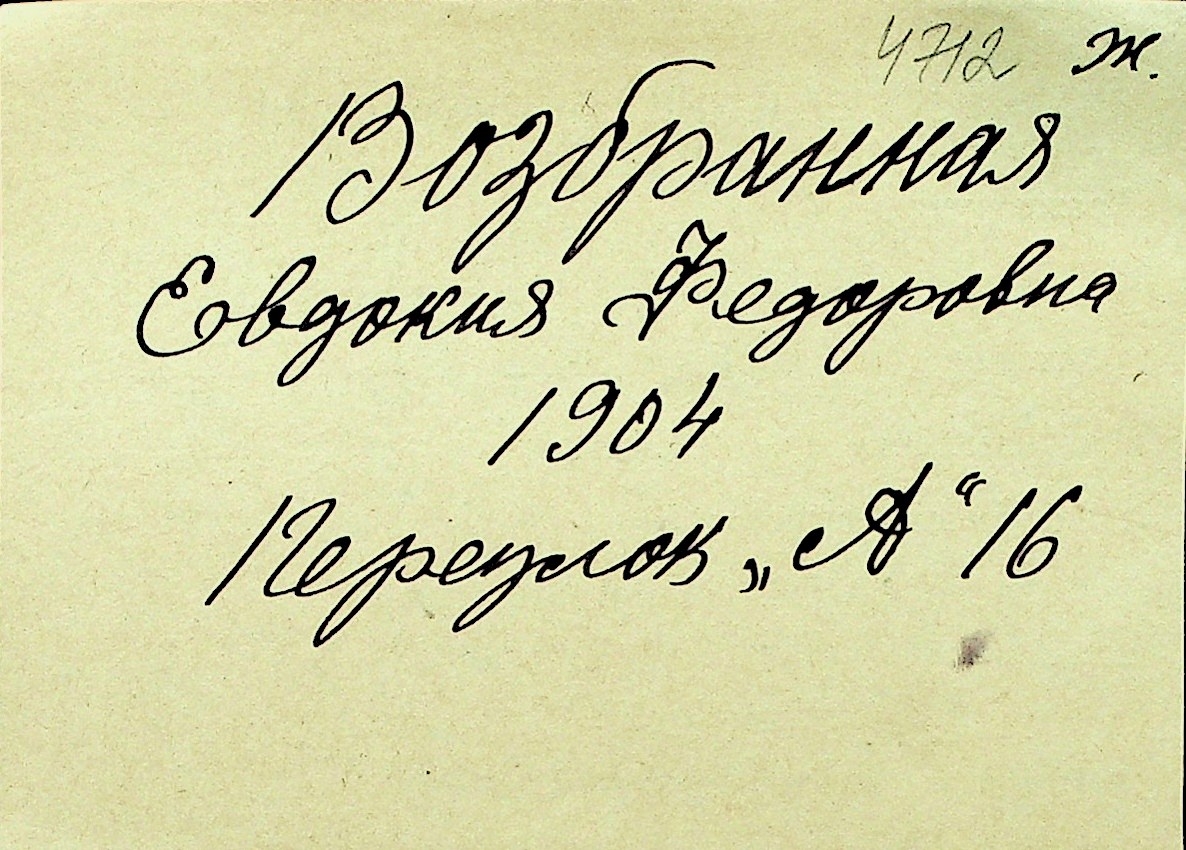 4712 ж.
Возбранная
Евдокия Федоровна
1904
Переулок „А“ 16